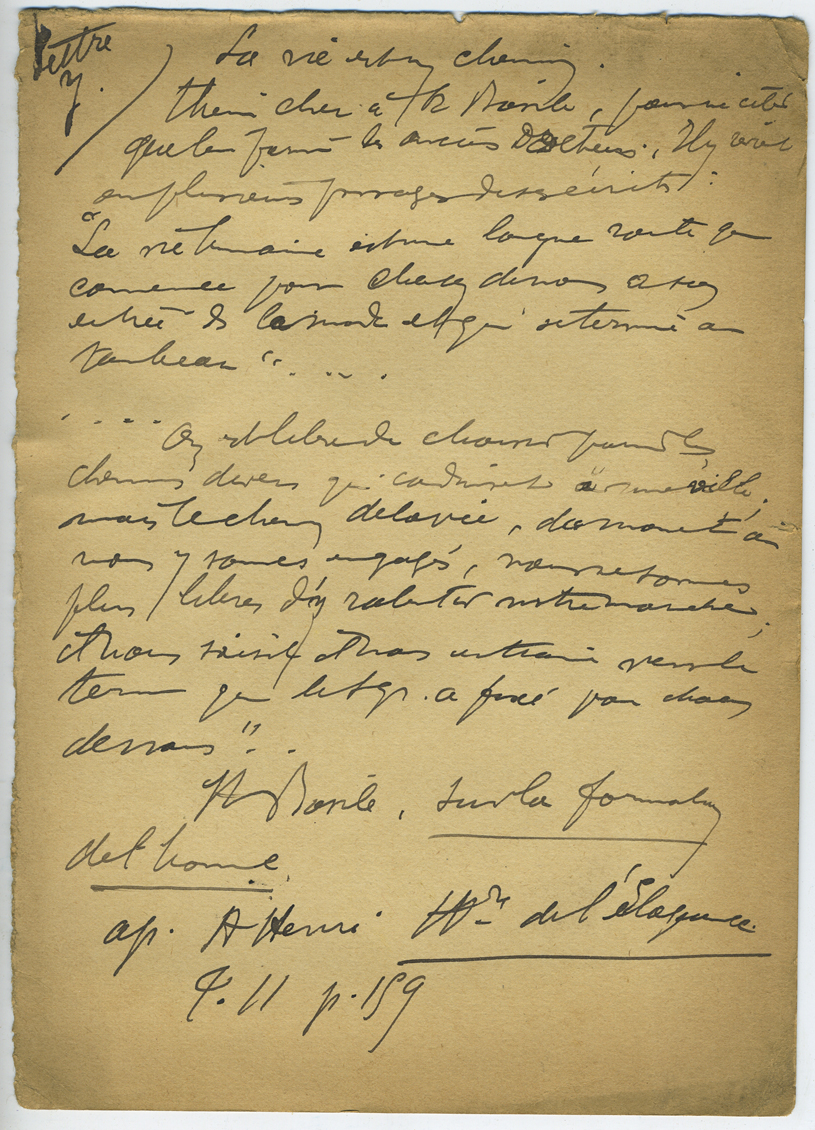 Lettre
7.
La vie est un chemin.
Thème cher à St Basile, pour ne citer
que lui parmi les anciens Docteurs. Il y revient
en plusieurs passages de ses écrits :
"La vie humaine est une longue route qui
commence pour chacun de nous à son
entrée ds le monde et qui se termine au
tombeau" . . . .
. . . . On est libre de choisir parmi les
chemins divers qui conduisent à une ville,
mais le chemin de la vie, du moment où
nous y sommes engagés, nous ne sommes
plus libres d'y ralentir notre marche ;
il nous saisit et nous entraîne vers le
terme que le Sgr. a fixé pour chacun
de nous" . .
St Basile, sur la formation
de l'homme
ap. A Henri Hre de l'Éloquence.
T. II p. 159